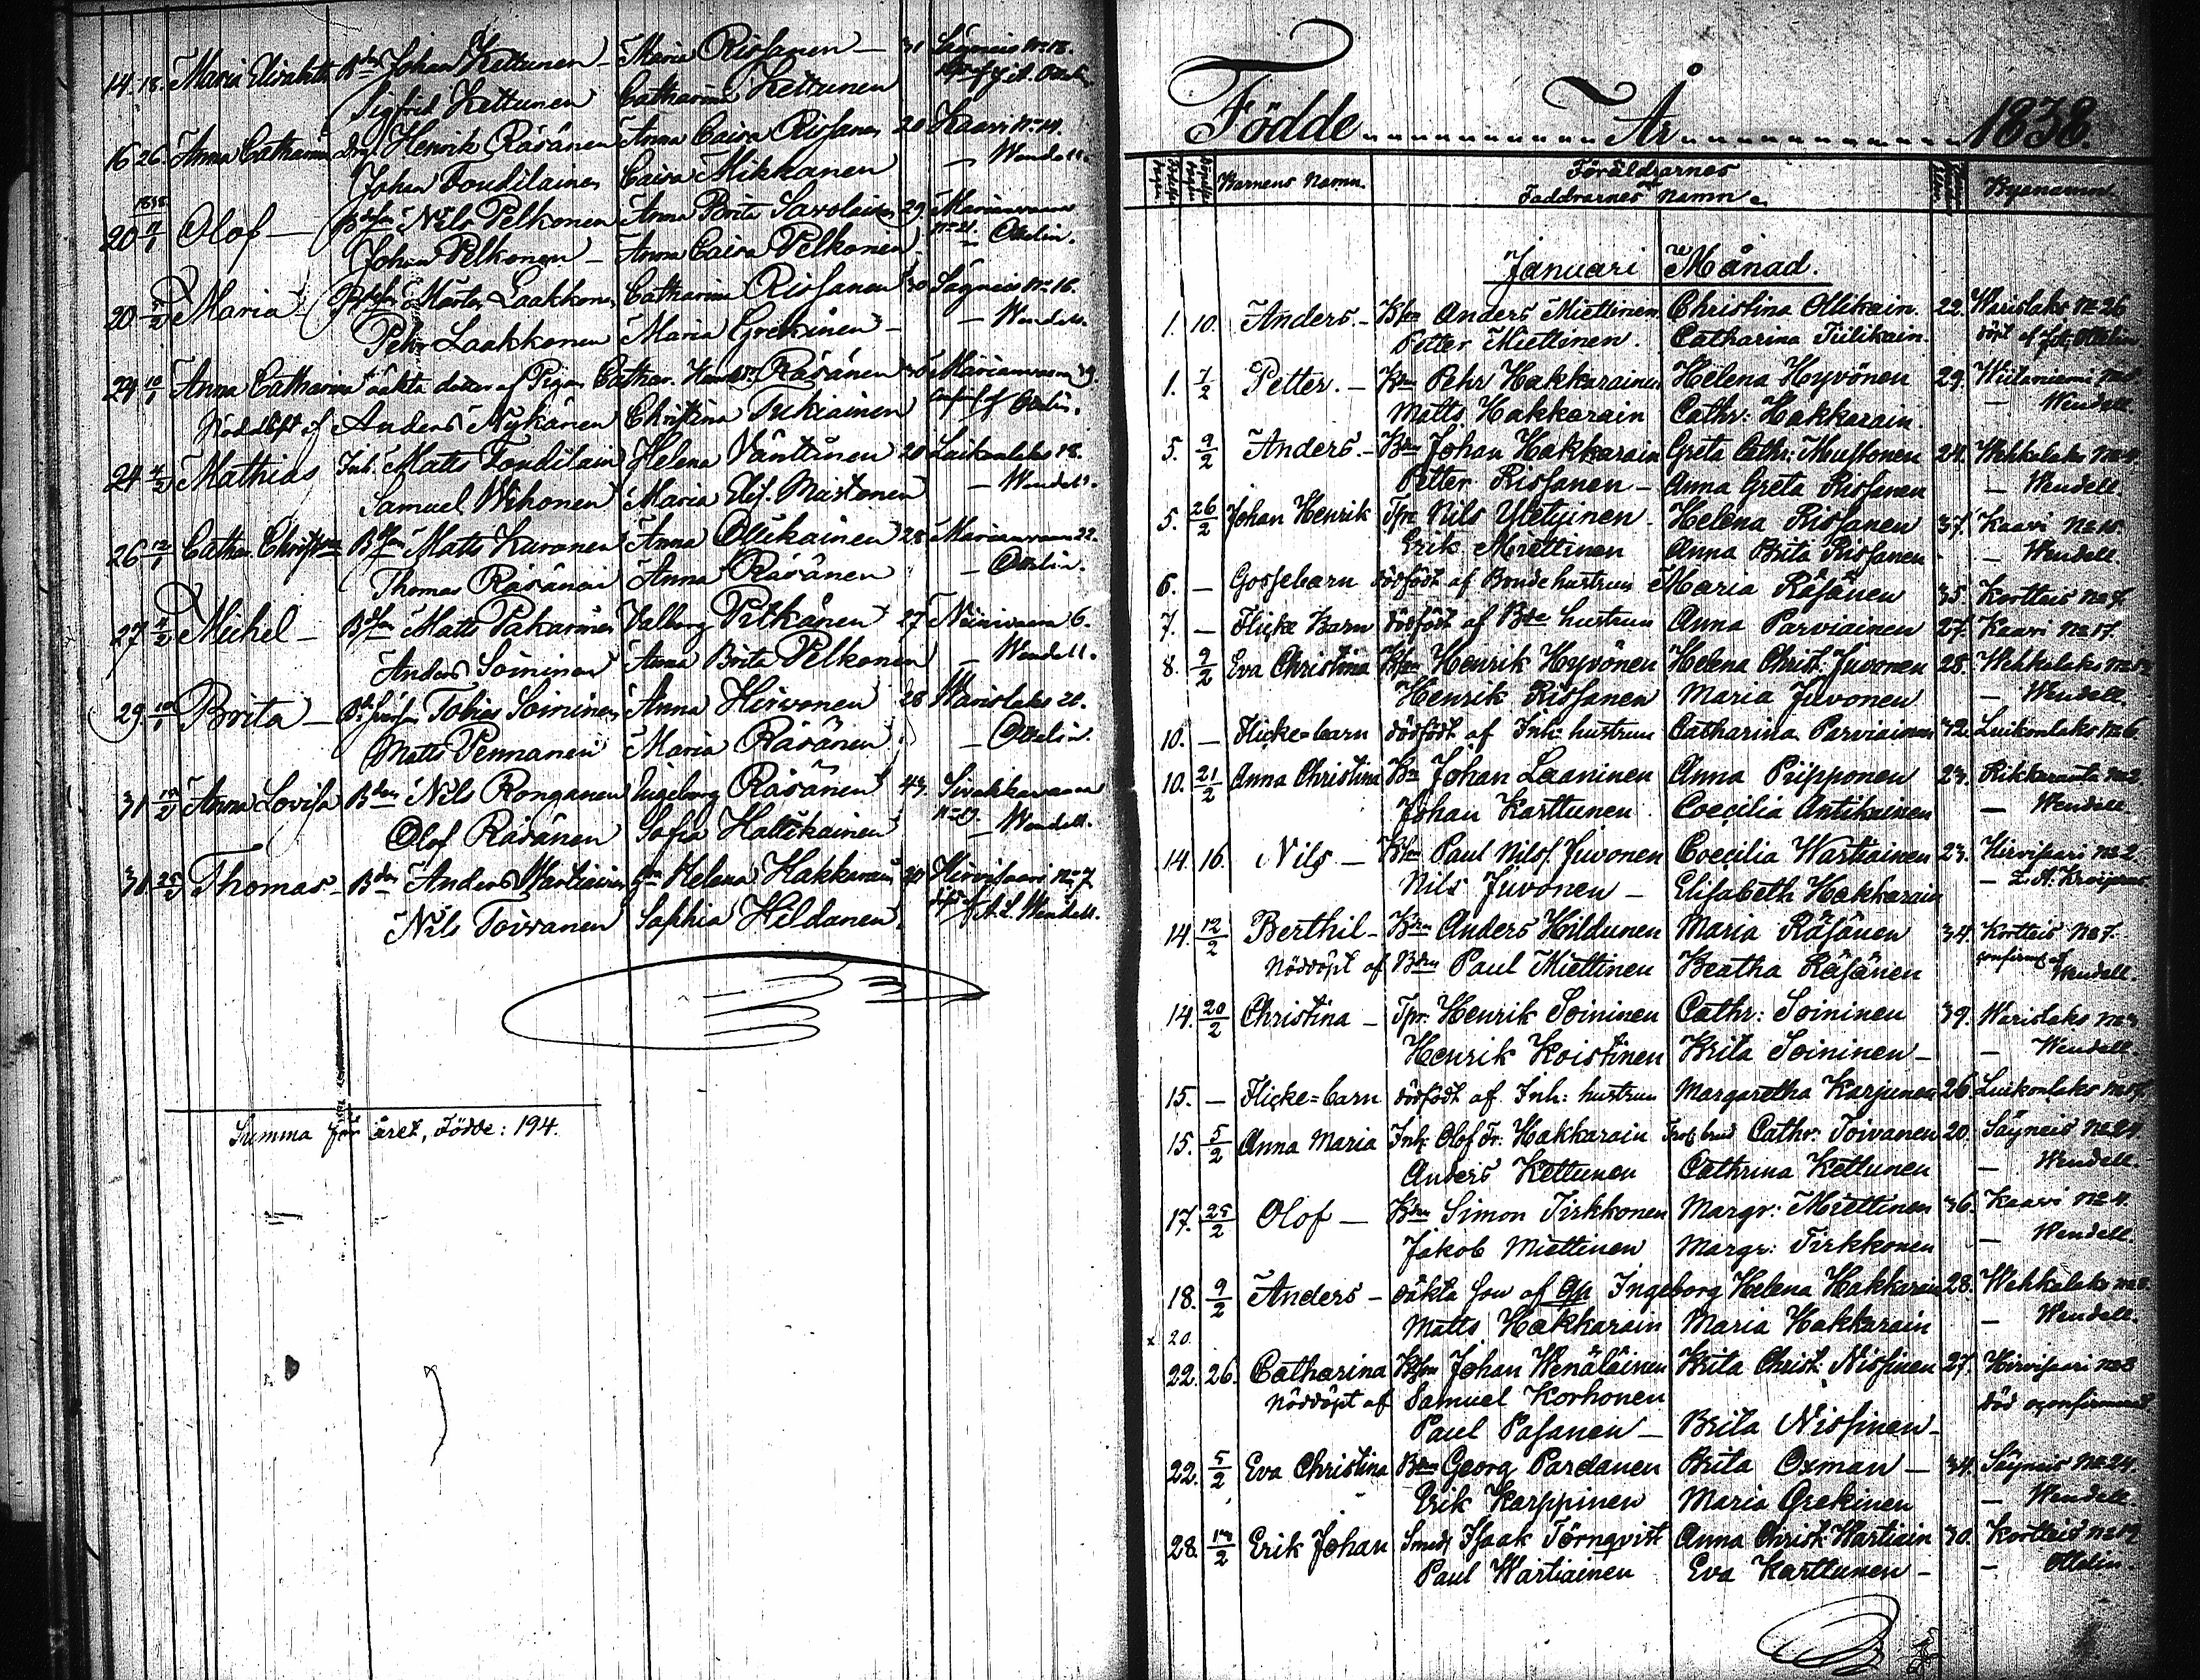 14. 18. Maria Elisabeth Bdn Johan Kettunen – Maria Rissanen – 31 Säyneis No 18.
Sigfrid Kettunen Catharina Kettunen
16 26. Anna Catharina Henrik Räsänen Anna Caisa Rissanen 20 Kaavi No 14.
Johan Toudilainen Caisa Mikkanen – Wendell.
1838
20 Olof – Nils Pelkonen Anna Brita Savolainen 29
Johan Pelkonen – Anna Caisa Pelkonen Ottelin.
20 Maria – Mårten Laakkonen Catharina Rissanen 30 Säyneis No 16.
Pehr Laakkonen Maria Grekinen – – Wendell.
24 10/1 Anna Catharina oäkta dotter af Pigan Cathar. Räsänen
Nöddöpt af Anders Nykänen Christina Tukiainen
24 4/2 Mathias Inh. Matts Toudilain Helena Väntinen 20 Luikonlaks 18.
Samuel Wihonen Maria Elis. – Wendell.
26 12/1 Cathar. Christina Matts Kuronen Anna Ollikainen 28 22.
Thomas Räsänen Anna Räsänen – Ottelin.
27 4/2 Michel – Matts Pakarinen Valborg Pitkänen 27 Niinivaara 6.
Anders Soininen Anna Brita Pelkonen – Wendell.
29 10/1 Brita – Tobias Soininen Anna Hirvonen 28 Варislaks 21.
Matts Pennanen Maria Räsänen – Ottelin.
31 Anna Lovisa Bdn Nils Ronganen Ingeborg Räsänen 43. Sivakkavaara
Olof Räsänen Sofia Hattikainen – Wendell.
31 Thomas – Bdn Anders Wartiainen Helena Hakkarain 40 Hirvisaari No 7
Nils Toivanen Sophia Hildanen. A. L. Wendell.
Summa för året, Födde: 194.
Födde År 1838.
Barnens Namn. Föräldrarnes Faddrarnes Namn. Byanamn.
Januari Månad.
1. 10. Anders. – Bson Anders Miettinen. Christina Ollikain. 22. Warislaks No 26
Petter Miettinen. Catharina Tiilikain. döpt af Ottelin
1. 7/2 Petter. – Bdn Pehr Hakkarainen Helena Hyvönen 29. Wiitaniemi
Matts Hakkarain Cathr: Hakkarain. – Wendell.
5. 9/2 Anders. – Bdn Johan Hakkarain Greta Cathr: Mustonen 24. Wehkalaks No 4
Petter Rissanen – Anna Greta Rissanen – Wendell.
5. 26/2 Johan Henrik Tpr. Nils Yletyinen. Helena Rissanen 37. Kaavi No 15.
Erik Miettinen Anna Brita Rissanen – Wendell.
6. – Gossebarn dödfödt af Bondehustrun Maria Räsänen 35. Kortteis No 7.
7. – Flicke Barn dödfödt af Bde hustrun Anna Parviainen 27. Kaavi No 17.
8. 9/2 Eva Christina Bson Henrik Hyvönen Helena Christ: Juvonen 28. Wehkalaks No 12
Henrik Rissanen Maria Juvonen – Wendell.
10. – Flicke=barn dödfödt af Inh: hustrun Catharina Parviainen 32. Luikonlaks No 6
10. 21/2 Anna Christina Bdn Johan Laaninen Anna Piipponen 23. Rikkaranta No 2
Johan Karttunen Coecilia Antikainen – Wendell
14. 16. Nils – Bson Paul Nilss. Juvonen Coecilia Wartiainen 23. Hirvisaari No 2
Nils Juvonen – Elisabeth Hakkarain
14. 12/2 Berthil – Bdn Anders Hildunen Maria Räsänen 34. Kortteis No 7.
Nöddöpt af Bdn Paul Miettinen Beatha Räsänen confirm. af Wendell.
14. 20/2 Christina – Tpr: Henrik Soininen Cathr: Soininen 39. Warislaks No 3
Henrik Koistinen Brita Soininen – – Wendell.
15. – Flicke=barn dödfödt af Inh: hustrun Margaretha Karjunen 26. Luikonlaks
15. 5/2 Anna Maria Inh. Olof Hakkarain Cathr. Toivanen 20. Säyneis No 24
Anders Kettunen Cathrina Kettunen – Wendell.
17. 25/2 Olof – Bdn Simon Tirkkonen Margr: Miettinen 36. Kaavi No 4.
Jakob Miettinen Margr: Tirkkonen – Wendell.
18. 9/2 Anders – oäkta son af Ingeborg Helena Hakkarain 28. Wehkalaks
Matts Hakkarain Maria Hakkarain – Wendell.
x 20.
22. 26. Catharina Bson Johan Wenäläinen Brita Christ. Nissinen 27. Hirvisaari No 8
Nöddöpt af Samuel Korhonen
Paul Pasanen – Brita Nissinen –
22. 5/2 Eva Christina Bdn Georg Pardanen Brita Oxman – 34. Säyneis No 24.
Erik Karppinen Maria Grekinen – Wendell
28. Erik Johan Smed Isaak Törnqvist Anna Christ. Wartiain 30. Kortteis No 19
Paul Wartiainen Eva Karttunen – – Ottelin.